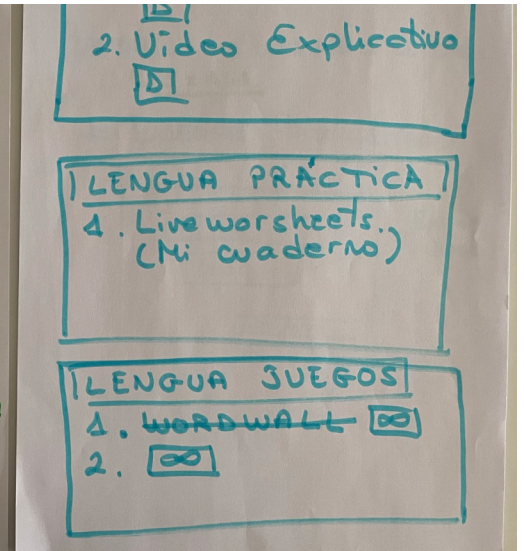 2. Vídeo Explicativo
LENGUA PRÁCTICA
1. Liveworsheets.
(Mi cuaderno)
LENGUA JUEGOS
1. WORDWALL ∞
2. ∞